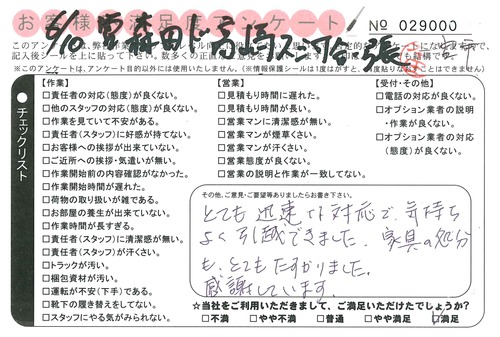 お客様満足度アンケート
№ 029000
記入後シールを上に貼って下さい。
※このアンケートは、アンケート目的以外には使用いたしません。(※情報保護シールは1度はがすと、再度貼りなおすことはできません)
チェックリスト
【作業】
□責任者の対応(態度)が良くない。
□他のスタッフの対応(態度)が良くない。
□作業を見ていて不安がある。
□責任者(スタッフ)に好感が持てない。
□お客様への挨拶が出来ていない。
□ご近所への挨拶・気遣いが無い。
□作業開始前の内容確認がなかった。
□作業開始時間が遅れた。
□荷物の取り扱いが雑である。
□お部屋の養生が出来ていない。
□作業時間が長すぎる。
□責任者(スタッフ)に清潔感が無い。
□責任者(スタッフ)が汗くさい。
□トラックが汚い。
□梱包資材が汚い。
□運転が不安(下手)である。
□靴下の履き替えをしてない。
□スタッフにやる気がみられない。
【営業】
□見積もり時間に遅れた。
□見積もりが長い。
□営業マンに清潔感が無い。
□営業マンが煙草くさい。
□営業マンが汗くさい。
□営業態度が良くない。
□営業の説明と作業が一致してない。
【受付・その他】
□電話の対応が良くない。
□オプション業者の説明
・作業が良くない。
□オプション業者の対応
(態度)が良くない。
その他、ご意見・ご要望等ありましたらお書き下さい。
とても迅速な対応で、気持ち
よく引越できました。家具の処分
も、とてもたすかりました。
感謝しています。
☆当社をご利用いただきまして、ご満足いただけたでしょうか?
□不満 □やや不満 □普通 □やや満足 ☑満足